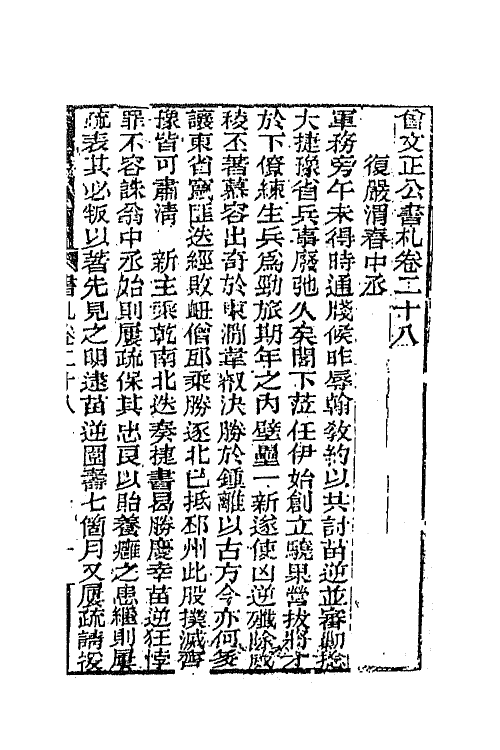 曾文正公書札卷二十八
復嚴渭春中丞
軍務旁午未得時通牋候昨辱翰敎約以共討苗逆並審勦捻
大捷豫省兵事廢弛久矣閣下蒞任伊始創立驍果營拔將才
於下僚練生兵爲勁旅期年之內壁壘一新遂使凶逆殲除殷
稜丕著慕容出奇於東澗韋叡決勝於鍾離以古方今亦何多
讓東省竄匪迭經敗衄僧邸乘勝逐北已抵邳州此股撲滅齊
豫皆可肅清　新主乘乾南北迭奏捷書曷勝慶幸苗逆狂悖
罪不容誅翁中丞始則屢疏保其忠良以貽養癰之患繼則屢
疏表其必叛以著先見之明逮苗逆圍壽七箇月又屢疏請援
書札卷二十八
一